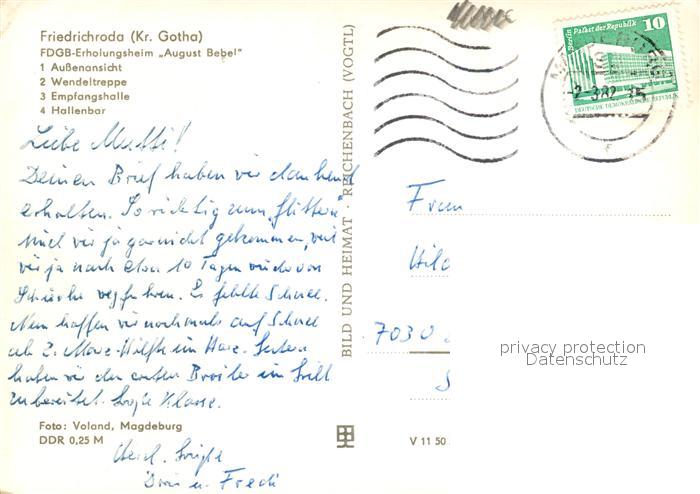 Friedrichroda (Kr. Gotha)
FDGB-Erholungsheim „August Bebel"
1 Außenansicht
2 Wendeltreppe
3 Empfangshalle
4 Hallenbar
Liebe Mutti!
Deinen Brief haben wir dankend
erhalten. So richtig zum „Flittern"
sind wir ja gar nicht gekommen, weil
wir ja nach etwa 10 Tagen wieder von
wegfuhren. Es fehlte Schnee.
Nun hoffen wir nochmals auf Schnee
ab 2. März-Hälfte im Harz. Gestern
haben wir den ersten Broiler im Grill
zubereitet. Große Klasse.
Herzl. Grüße
u. Fredi
Foto: Voland, Magdeburg
DDR 0,25 M
BILD UND HEIMAT REICHENBACH (VOGTL)
V 11 50
Berlin Palast der Republik
10
DEUTSCHE DEMOKRATISCHE REPUBLIK
-2.3.82
Frau
Hild
7030
privacy protection
Datenschutz